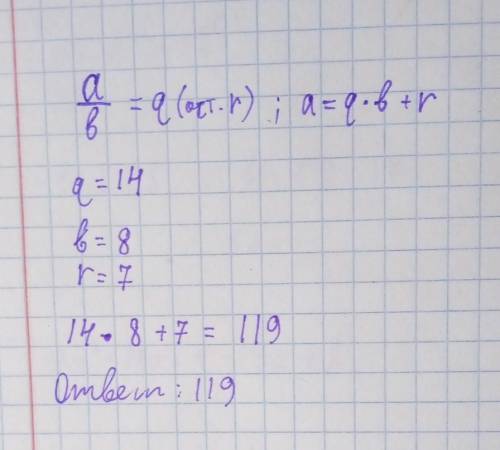 a/в = q (ост. r) ; a = q · в + r
q = 14
в = 8
r = 7
14 · 8 + 7 = 119
Ответ : 119